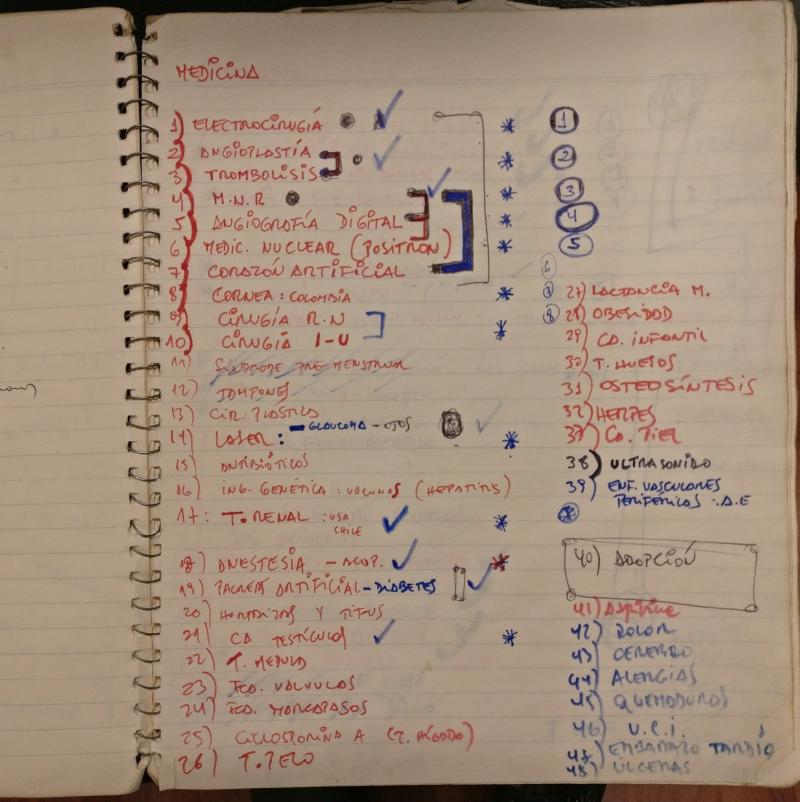 MEDICINA
1) ELECTROCIRUGÍA
2) ANGIOPLASTÍA
3) TROMBOLISIS
4) M.N.R
5) ANGIOGRAFÍA DIGITAL
6) MEDIC. NUCLEAR (POSITRON)
7) CORAZÓN ARTIFICIAL
8) CORNEA : COLOMBIA
9) CIRUGÍA R.N
10) CIRUGÍA I-U
11) SÍNDROME PRE MENSTRUAL
12) TAMPONES
13) CIR. PLÁSTICA
14) LASER : - GLAUCOMA - OJOS
15) ANTIBIÓTICOS
16) ING. GENÉTICA : VACUNAS (HEPATITIS)
17 : T. RENAL : USA
CHILE
18) ANESTESIA - ACUP.
19) PACREAS ARTIFICIAL - DIABETES
20) Y TIFUS
21) CA TESTÍCULOS
22) T. MEDULA
23) FCO. VALVULAS
24) FCO. MARCAPASOS
25) CICLOSPORINA A
26) T. PELO
1
2
3
4
5
6
7
8
27) LACTANCIA M.
28) OBESIDAD
29) CA. INFANTIL
30) T. HUESOS
31) OSTEOSÍNTESIS
32) HERPES
37) CA. PIEL
38) ULTRASONIDO
39) ENF. VASCULARES
PERIFÉRICAS : A.E
40) ADOPCIÓN
41) Aspirina
42) DOLOR
43) CEREBRO
44) ALERGIAS
45) QUEMADURAS
46) U.C.I.
47) EMBARAZO TARDÍO
48) ÚLCERAS